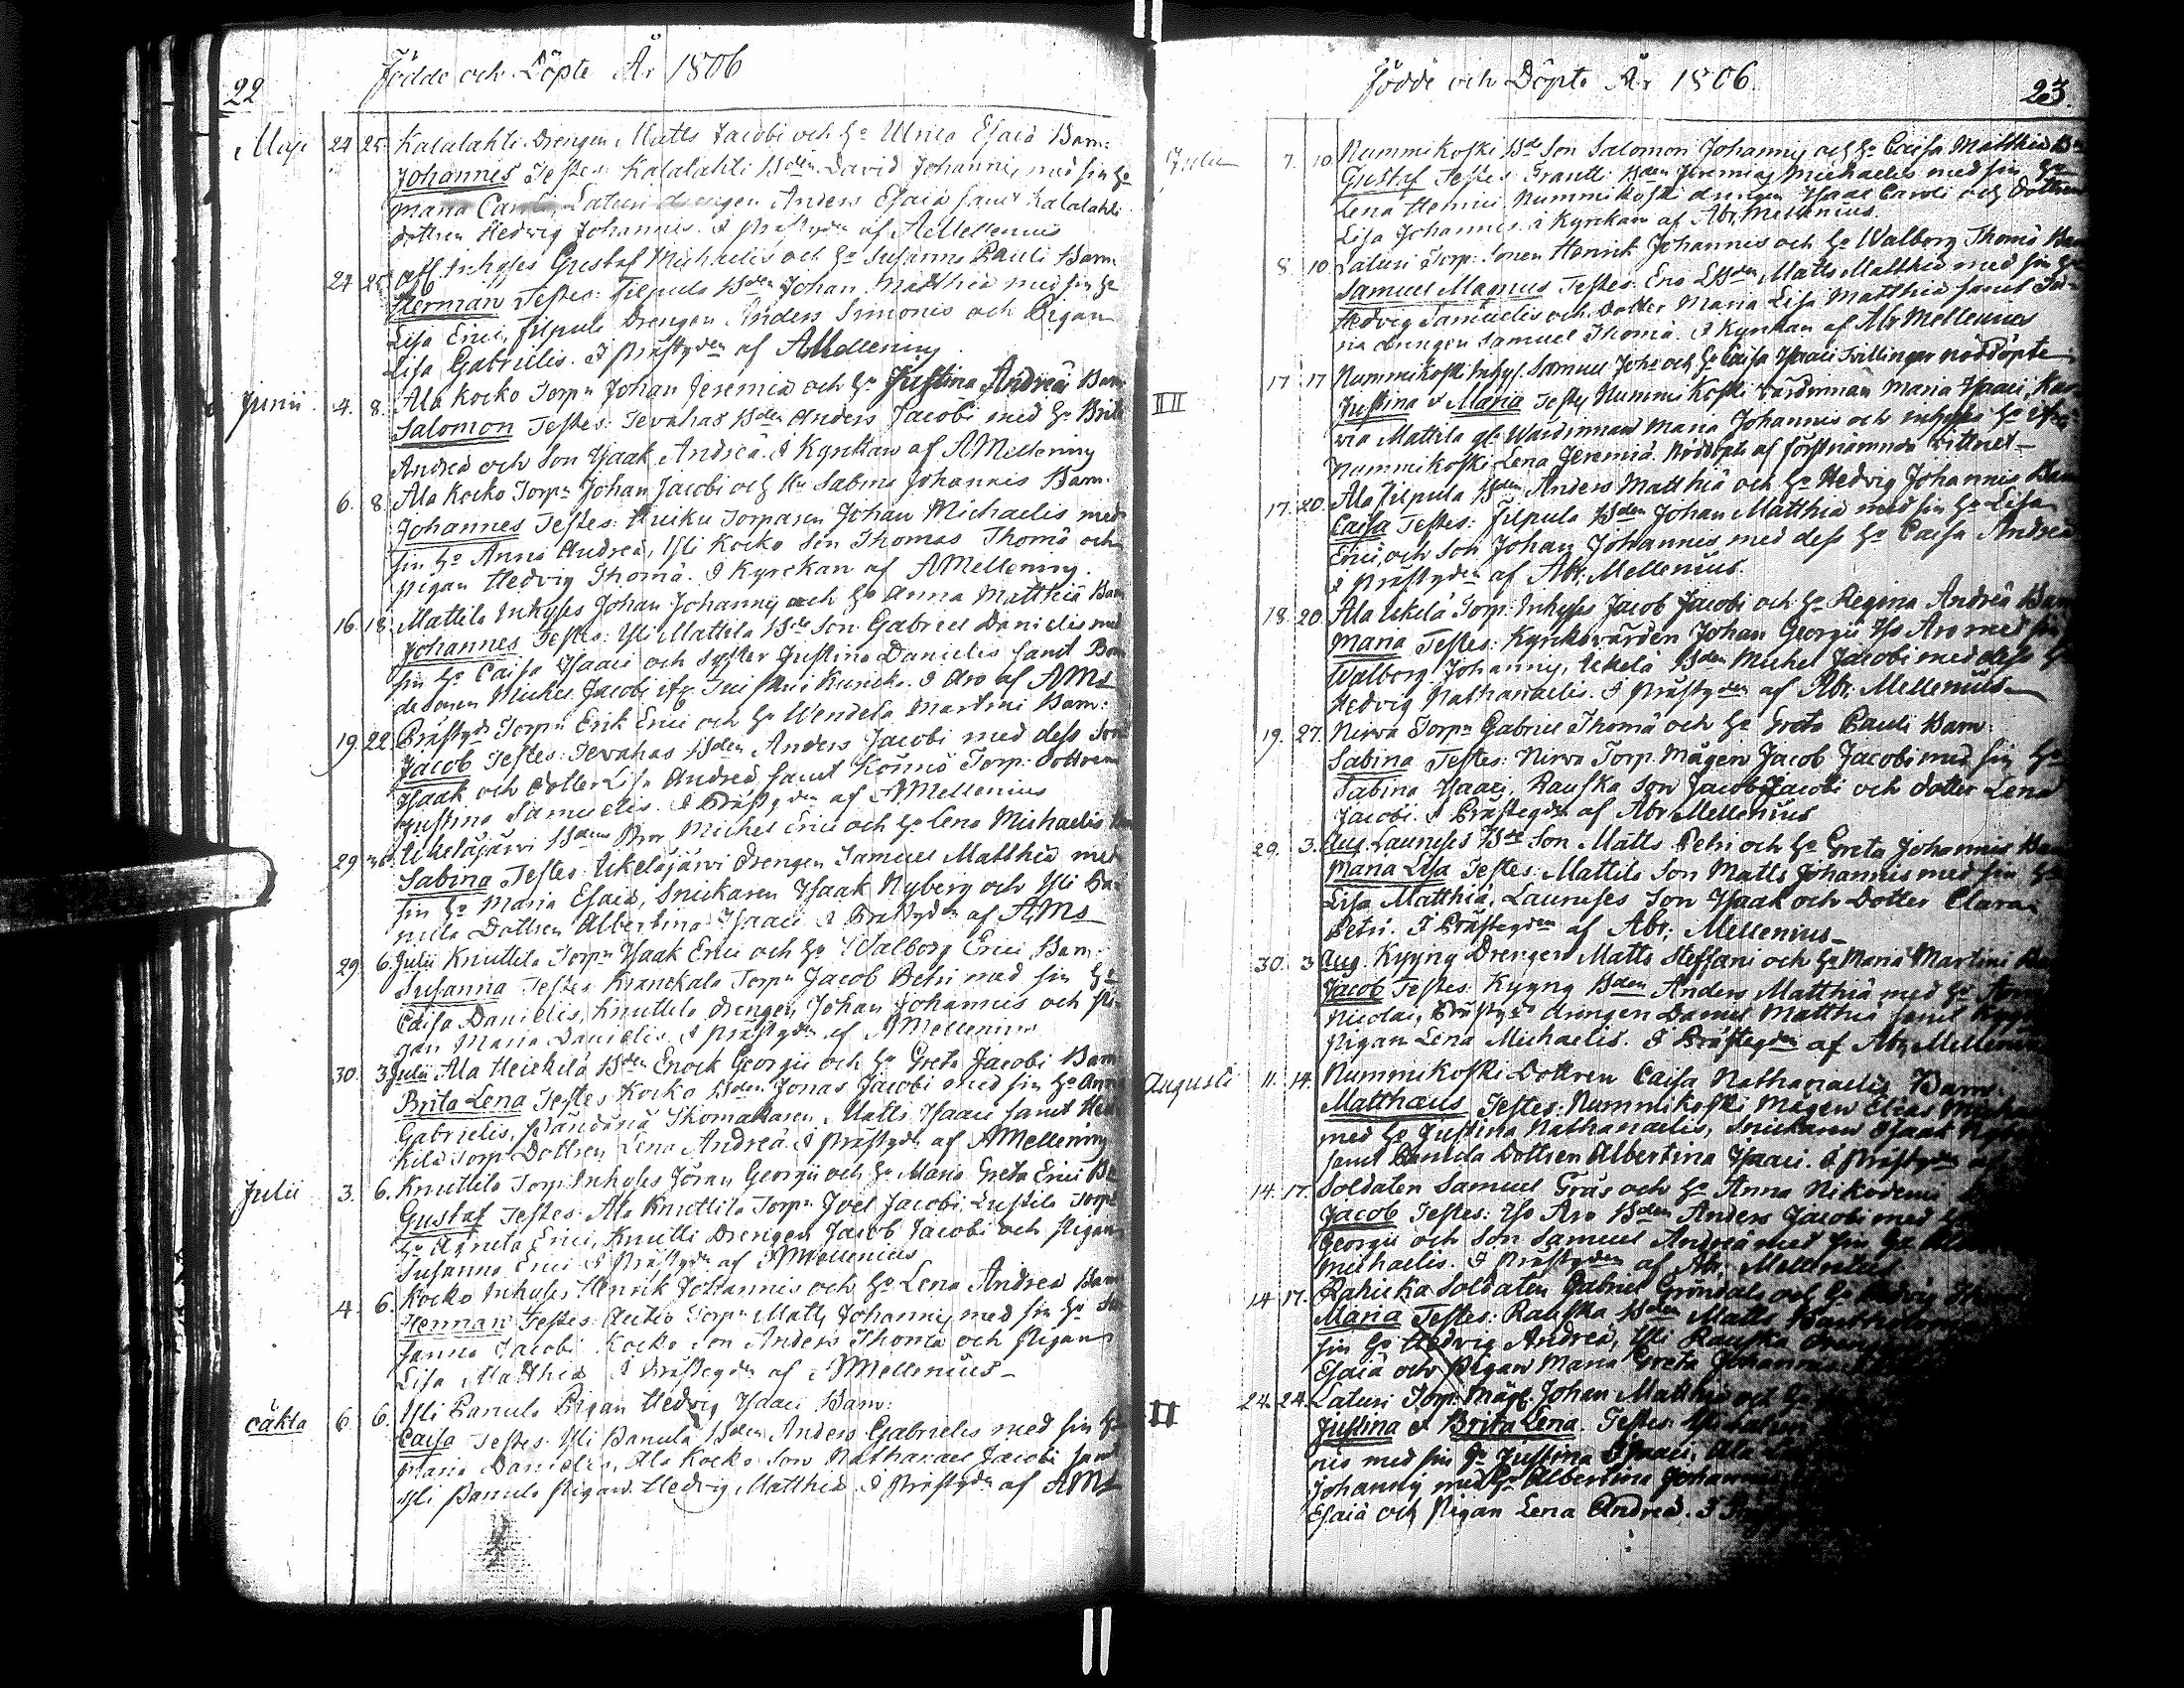 22
Födde och Döpte År 1806
Maji 24 25 Kalalahti Drengen Matts Jacobi och h:o Ulrica Esaiæ Barn:
Johannes Testes: Kalalahti Bden David Johannis, med sin h:o
Maria Caroli, Laturi drengen Anders Esaiæ samt Kalalahti
dottren Hedvig Johannis. I Prästgden af AMellenius
24 25 Inhyses Gustaf Michaelis och h:o Susanna Pauli Barn
Herman Testes: Filpula Bden Johan Matthiæ med sin h:o
Lisa Erici, Filpula Drengen Anders Simonis och Pigan
Lisa Gabrielis. I Prästgden af AMellenius
Junii 4. 8. Ala Kocko Torpn Johan Jeremiæ och h:o Justina Andreæ Barn
Salomon Testes: Tevahas Bden Anders Jacobi med h:o Brita
Andreæ och Son Isaak Andreæ. I Kyrckan af AMellenius
6. 8 Ala Kocko Torpn Johan Jacobi och Hu Sabina Johannis Barn.
Johannes Testes: Torparen Johan Michaelis med
sin h:o Anna Andreæ, Yli Kocko Son Thomas Thomæ och
pigan Hedvig Thomæ. I Kyrckan af AMellenius.
16 18 Mattila Inhyses Johan Johannis och h:o Anna Matthiæ Barn
Johannes Testes: Yli Mattila Bde Son Gabriel Danielis med
sin h:o Caisa Isaaci och Syster Justina Danielis samt Bon-
desonen Michel Jacobi I Aro af AMs
19 22 Prästgds Torpn Erik Erici och h:o Wendela Martini Barn:
Jacob Testes: Tevahas Bden Anders Jacobi med dess Son
Isaak och Dotter Lisa Andreæ samt Könnö Torp: Dottren
Justina Samuelis. I Prästgden af AMellenius
29 30 Ukelajärvi Bdens Bror Michel Erici och h:o Lena Michaelis
Sabina Testes: Ukelajärvi Drengen Samuel Matthiæ med
sin h:o Maria Esaiæ, Snickaren Isaak Nyberg och Yli Pa-
nula Dottren Albertina Isaaci I Prästgden af AMs
29 6. Julii Knuttila Torpn Isaak Erici och h:o Walborg Erici Barn
Susanna Testes: Kranckala Torpn Jacob Petri med sin h:o
Caisa Danielis, Knuttila drengen Johan Johannis och Pi-
gan Maria Danielis. I Prästgden af AMellenius
30. 3 Julii Ala Heickilä Bden Enock Georgii och h:o Greta Jacobi Barn
Brita Lena Testes: Kocko Bden Jonas Jacobi med sin h:o Anna
Gabrielis, Skomakaren Matts Isaaci samt
Torp Dottren Lena Andreæ. I Prästgden af AMellenius
Julii 3. 6. Knuttila Torp: Inhyses Jöran Georgii och h:o Maria Greta Erici
Gustaf Testes: Ala Knuttila Torpn Joel Jacobi, Lustila Torpn
h:o Agneta Erici, Knutti Drengen Jacob Jacobi och Pigan
Susanna Erici I Prästgden af AMellenius
4. 6. Kocko Inhyses Henrik Johannis och h:o Lena Andreæ Barn
Herman Testes: Autio Torpn Matts Johannis med sin h:o Su-
sanna Jacobi Kocko Son Anders Thomæ och Pigan
Lisa Matthiæ I Prästegden af AMellenius
oäkta 6 6. Yli Panula Pigan Hedvig Isaaci Barn:
Caisa Testes: Yli Panula Bden Anders Gabrielis med sin h:o
Maria Danielis, Ala Kocko Son Nathanael Jacobi samt
Yli Panula Pigan Hedvig Matthiæ I Prästgden af AMs
Födde och Döpte År 1806.
23.
Julii 7. 10 Nummikoski Bde Son Salomon Johannis och h:o Caisa Matthiæ Bn
Gustaf Testes: Bden Jeremias Michaelis med sin h:o
Lena Henrici Nummikoski drengen Isaac Caroli och Dottren
Lisa Johannis. i Kyrckan af Abr. Mellenius.
8. 10. Laturi Torp: Sonen Henrik Johannis och h:o Walborg Thomæ Barn
Samuel Magnus Testes: Matts Matthiæ med sin h:o
Hedvig Samuelis och Dotter Maria Lisa Matthiæ samt
drengen Samuel Thomæ. I Kyrckan af Abr Mellenius
II 17 17 Nummikoski Inhys. Samuel Joh: och h:o Caisa Isaaci Tvillingar nöddöpte
Justina & Maria Testes Nummikoski Värdinnan Maria Isaaci,
Mattila gl: Wärdinnan Maria Johannis och inhyses h:o
Nummikoski Lena Jeremiæ. Nöddöpte af förstnämnde Vittnet
17. 20. Ala Filpula Bden Anders Matthiæ och h:o Hedvig Johannis Barn
Caisa Testes: Filpula Bden Johan Matthiæ med sin h:o Lisa
Erici, och Son Johan Johannis med dess h:o Caisa Andreæ
I Prästgden af Abr: Mellenius.
18. 20. Ala Ukela Torp: Inhyses Jacob Jacobi och h:o Regina Andreæ Barn
Maria Testes: Kyrkovärden Johan Georgii Iso Aro med sin
Walborg Johannis, Ukela Bden Michel Jacobi med dess h:o
Hedvig Nathanaelis. I Prästgden af Abr: Mellenius
19. 27. Nirva Torpn Gabriel Thomæ och h:o Greta Pauli Barn
Sabina Testes: Nirva Torp: Mågen Jacob Jacobi med sin h:o
Sabina Isaaci, Rauska Son Jacob Jacobi och dotter Lena
Jacobi. I Prästegden af Abr Mellenius
29. 3. Aug. Launuses Bde Son Matts Petri och h:o Greta Johannis Barn
Maria Lisa Testes: Mattila Son Matts Johannis med sin h:o
Lisa Matthiæ, Launuses Son Isaak och Dotter Clara
Petri. I Prästegden af Abr: Mellenius
30. 3 Aug. Kyyny Drengen Matts Steffani och h:o Maria Martini
Jacob Testes: Kyyny Bden Anders Matthiæ med h:o
Nicolai, Prästgds drengen Daniel Matthiæ samt
Pigan Lena Michaelis. I Prästegden af Abr Mellenius
Augusti 11. 14. Nummikoski Dottren Caisa Nathanaelis Barn
Matthæus Testes: Nummikoski Mågen Elias
med h:o Justina Nathanaelis, Snickaren Isaak
samt Panula Dottren Albertina Isaaci. I Prästgden
14. 17. Soldaten Samuel Gräs och h:o Anna Nikodemi
Jacob Testes: Iso Aro Bden Anders Jacobi med
Georgii och Son Samuel Andreæ med sin h:o
Michaelis. I Prästgden af Abr. Mellenius
14 17. Rahicka Soldaten Gabriel Gröndahl och h:o Hedvig
Maria Testes: Rauska Bden Matts
sin h:o Hedvig Andreæ, Yli Rauska
Esaiæ och Pigan Maria Greta Johannis
II 24. 24. Laturi Torp: Måg: Johan Matthiæ och h:o
Justina & Brita Lena. Testes:
med sin h:o Justina Isaaci, Ala
Johannis med h:o Albertina Johannis
Esaiæ och Pigan Lena Andreæ. I